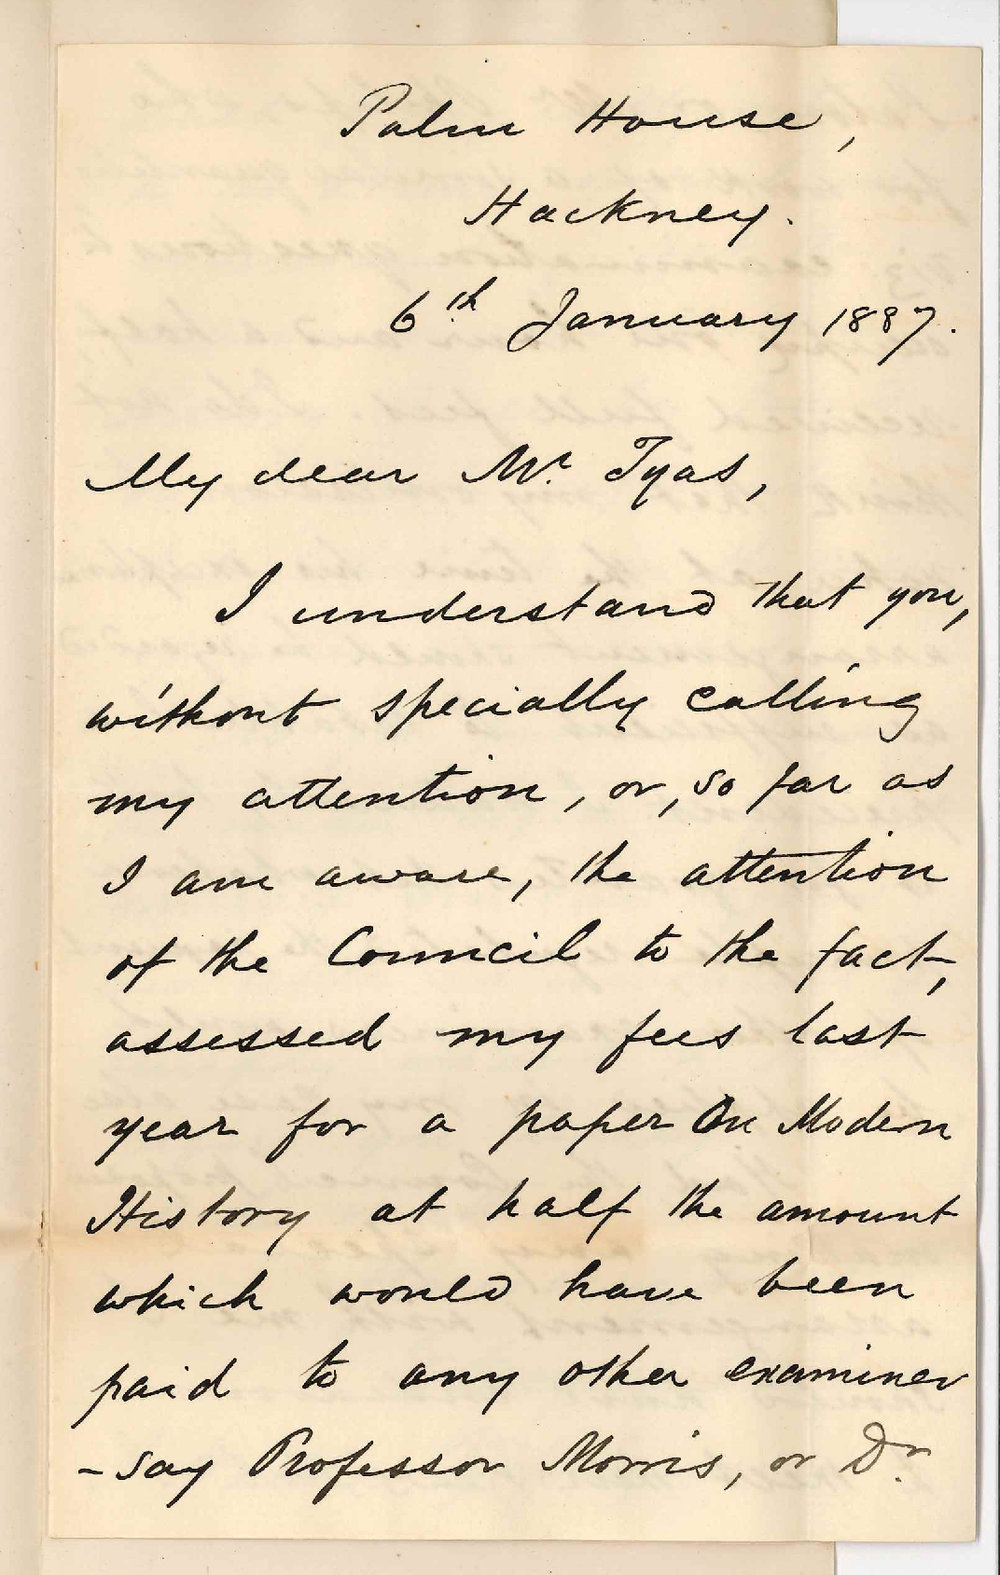 Palm House,
Hackney.
6th January 1887.
My dear Mr. Tyas,
I understand that you,
without specially calling
my attention, or, so far as
I am aware, the attention
of the Council to the fact,
assessed my fees last
year for a paper On Modern
History at half the amount
which would have been
paid to any other examiner
- say Professor Morris, or Dr.